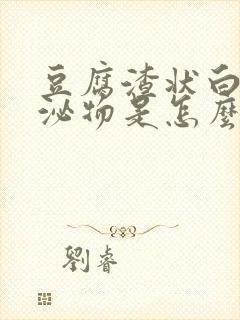 豆腐渣状白
泌物是怎麼
劉睿